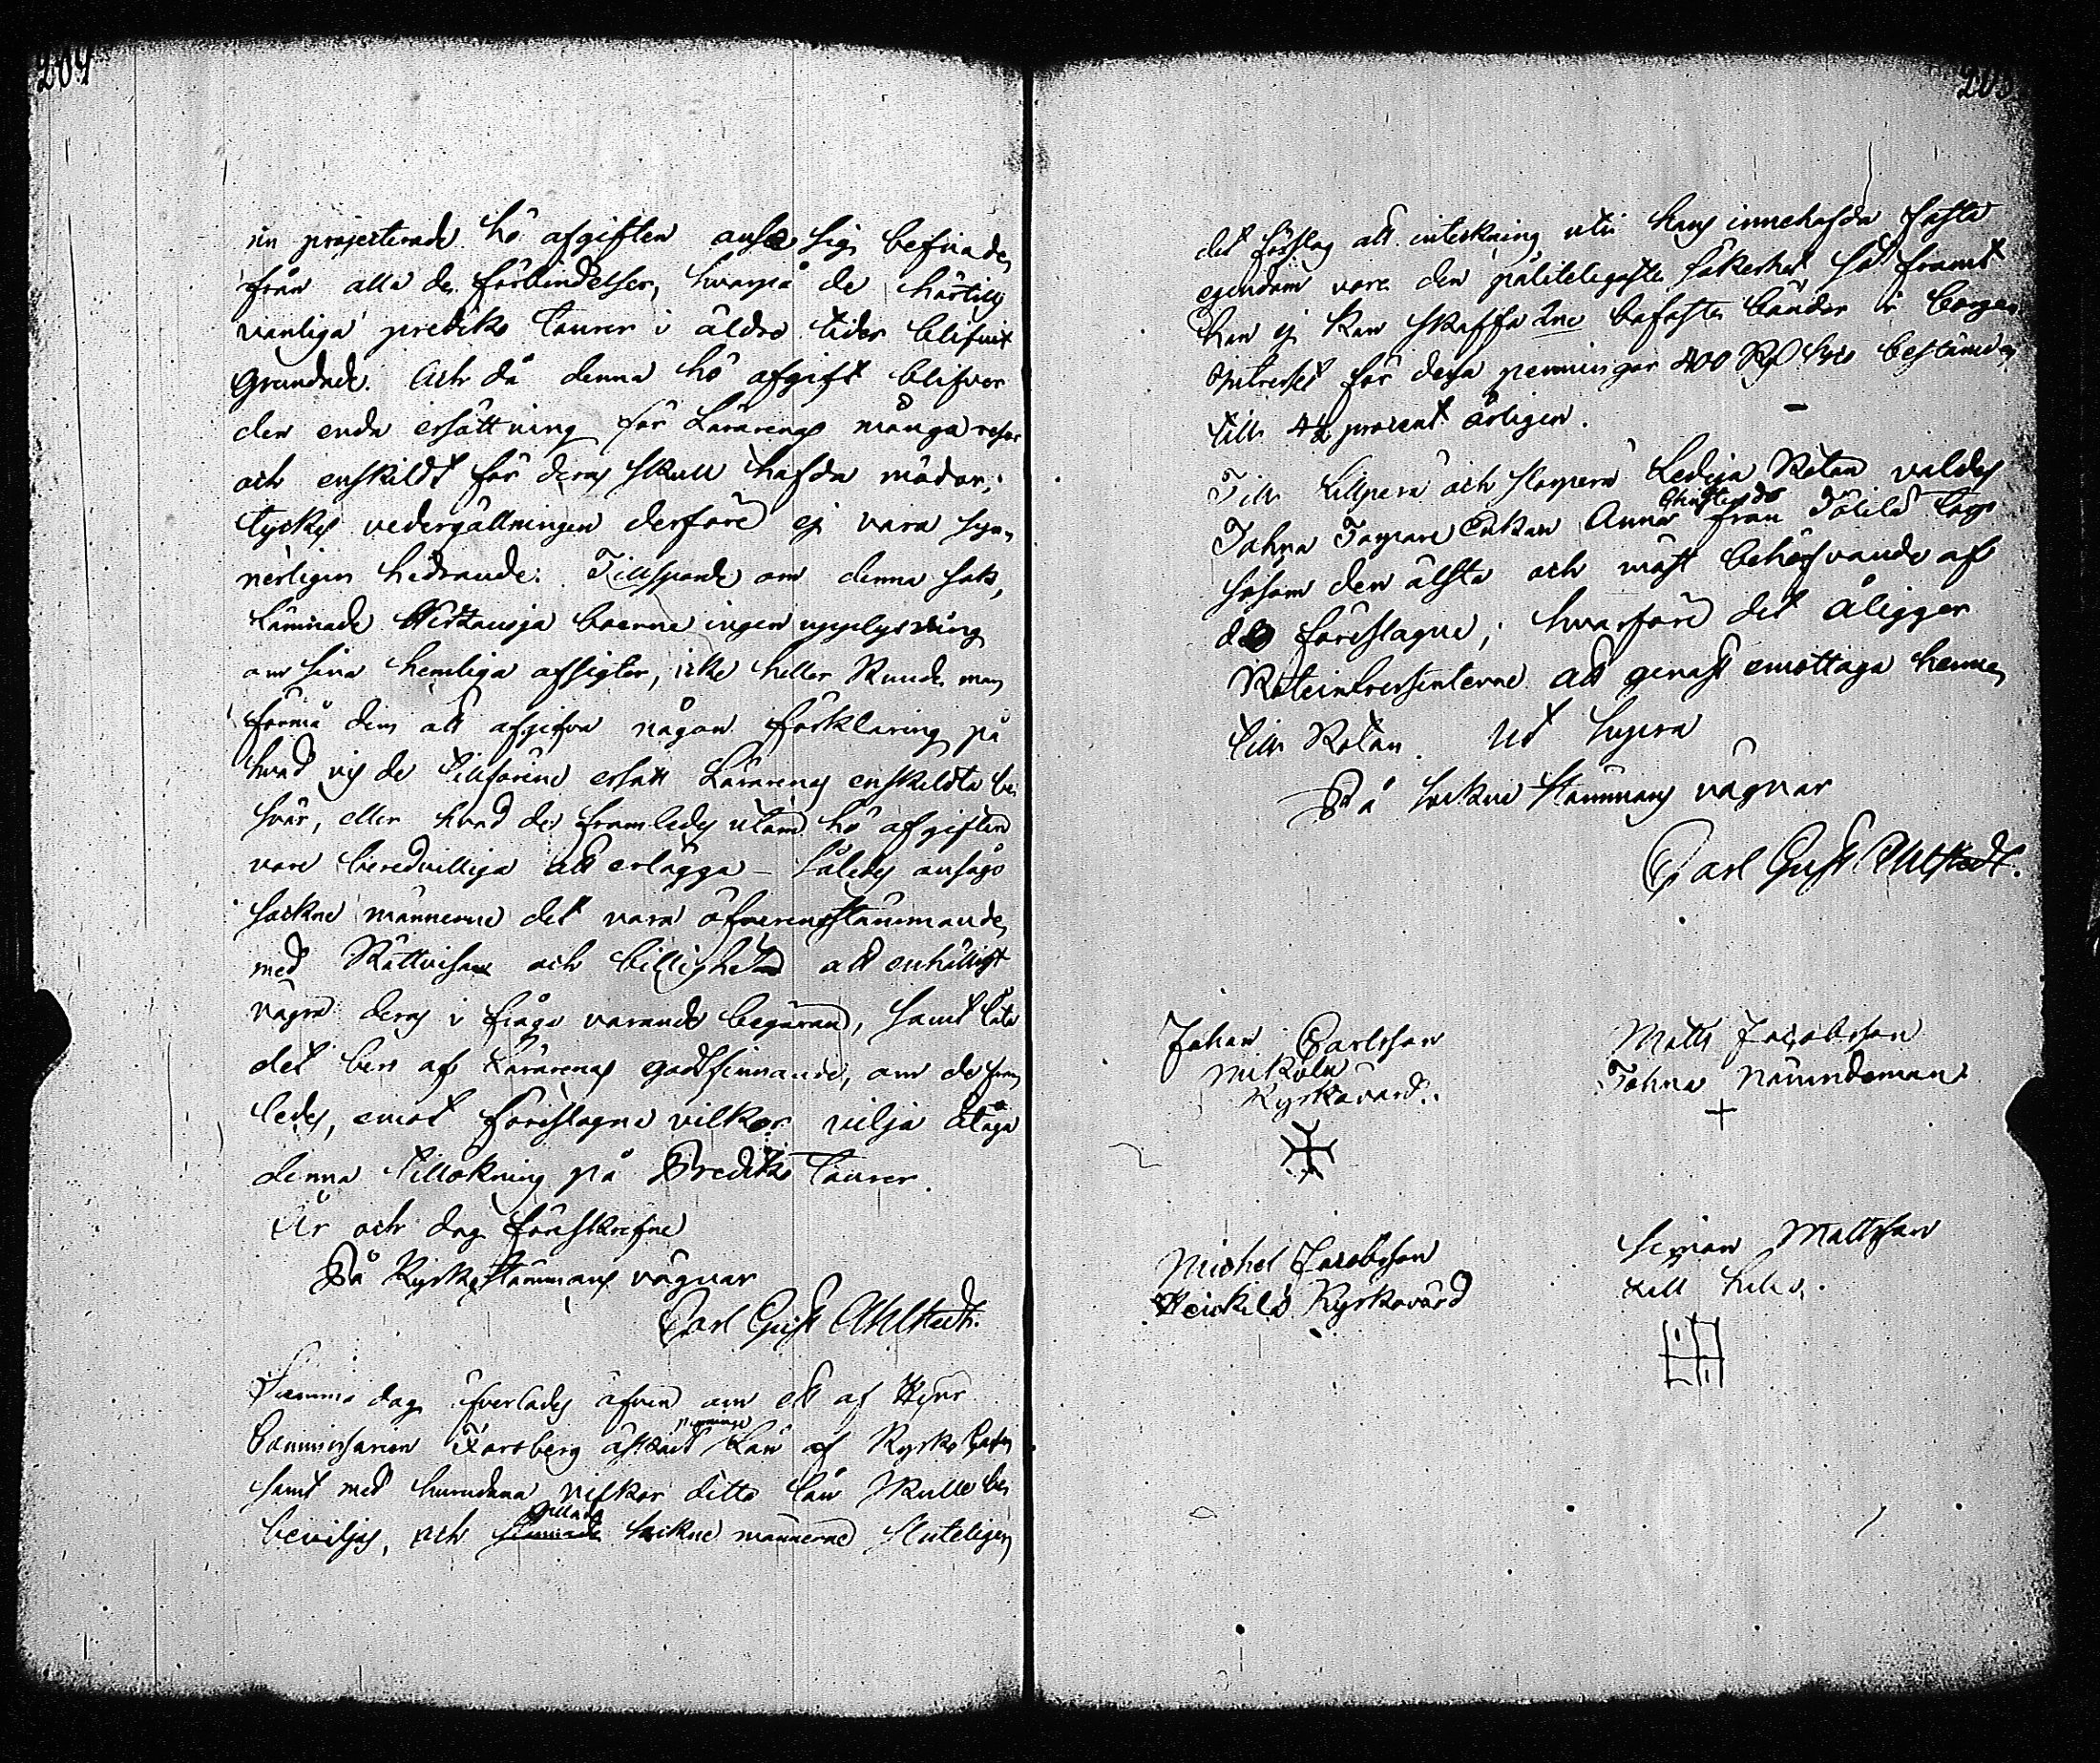 204
nu projecterade hö afgiften anse sig befriade
från alla de förbindelser, hvarpå de härtills
vanliga predika tourer i äldre tider blifvit
grundade. Och då denna hö afgift blifver
den enda ersättning för Lärarens många resor
och enskildt för deras skull hafda mödor,
tyckes vedergällningen derföre ej vara syn-
nerligen hedrande. Tillsporde om denna sak,
lämnade boerne ingen upplysning
om sina hemliga afsigter, icke heller kunde man
förmå dem att afgifva någon förklaring på
hvad vis de tillförene ersatt Lärarens enskildta be-
svär, eller hvad de framledes utom hö afgiften
vore beredvilliga att erlägga – således ansågo
sockne männerne det vara öfverensstämmande
med Rättvisan och billigheten att enhälligt
vägra deras i fråga varande begäran, samt låta
det bero af Lärarens godtfinnande, om de fram-
ledes, emot föreslagne vilkor vilja åtaga
denna tillökning på Prediko tourer.
År och dag föreskrefne
På Kyrkostämmans vägnar
Carl Gust Ahlstedt.
Samma dag öfverlades äfven om ett af Herr
Commissarien Forsberg åstundt penninge Lån af Kyrko Cassan
samt med hurudana vilkor detta lån skulle be-
beviljas, och gillade sockne männerne sluteligen
205
det förslag att inteckning uti hans innehafda fasta
egendom vore den pålitligaste säkerhet så framt
han ej kan skaffa 2ne bofaste bönder i borgen
Intresset för dessa penningar 400 bestämdes
till procent årligen.
Till Lillpera och Storpera Lediga Rotan valdes
Johna Enkan Anna från
såsom den älsta och mäst behöfvande af
de föreslagne; hvarföre det åligger
Roteintressenterne att genast emottaga henne
till Rotan. Ut supra
På sockne stämmans vägnar
Carl Gust Ahlstedt.
Johan Carlsson
Mikola
Kyrkovärd.
Matts Jacobsson
Johna Nämndeman
Michel Jacobsson
Heickilä Kyrkovärd
Simon Mattsson